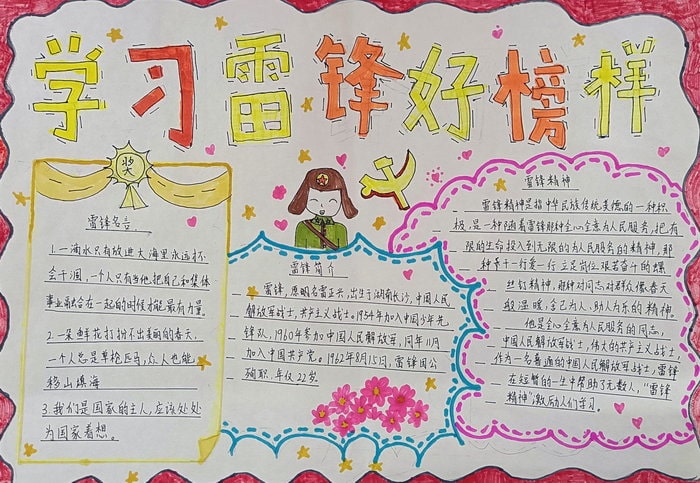 学习雷锋好榜样
奖
雷锋名言
1.一滴水只有放进大海里永远不
会干涸,一个人只有当他把自己和集体
事业融合在一起的时候才能最有力量
2.一朵鲜花打扮不出美丽的春天,
一个人总是单枪匹马,众人也能
移山填海
3.我们是国家的主人,应该处处
为国家着想。
雷锋简介
雷锋,原明名雷正兴,出生于湖南长沙,中国人民
解放军战士,共产主义战士。1954年加入中国少年先
锋队,1960年参加中国人民解放军,同年11月
加入中国共产党。1962年8月15日,雷锋因公
殉职,年仅22岁。
雷锋精神
雷锋精神是指中华民族传统美德的一种积
极,是一种随着雷锋那种全心全意为人民服务,把有
限的生命投入到无限的为人民服务的精神,那
种干一行爱一行立足岗位,艰苦奋斗的螺
丝钉精神,那种对同志对群众像春天
般温暖,舍己为人、助人为乐的精神。
他是全心全意为人民服务的同志,
中国人民解放军战士,伟大的共产主义战士,
作为一名普通的中国人民解放军战士,雷锋
在短暂的一生中帮助了无数人,“雷锋
精神”激励人们学习。